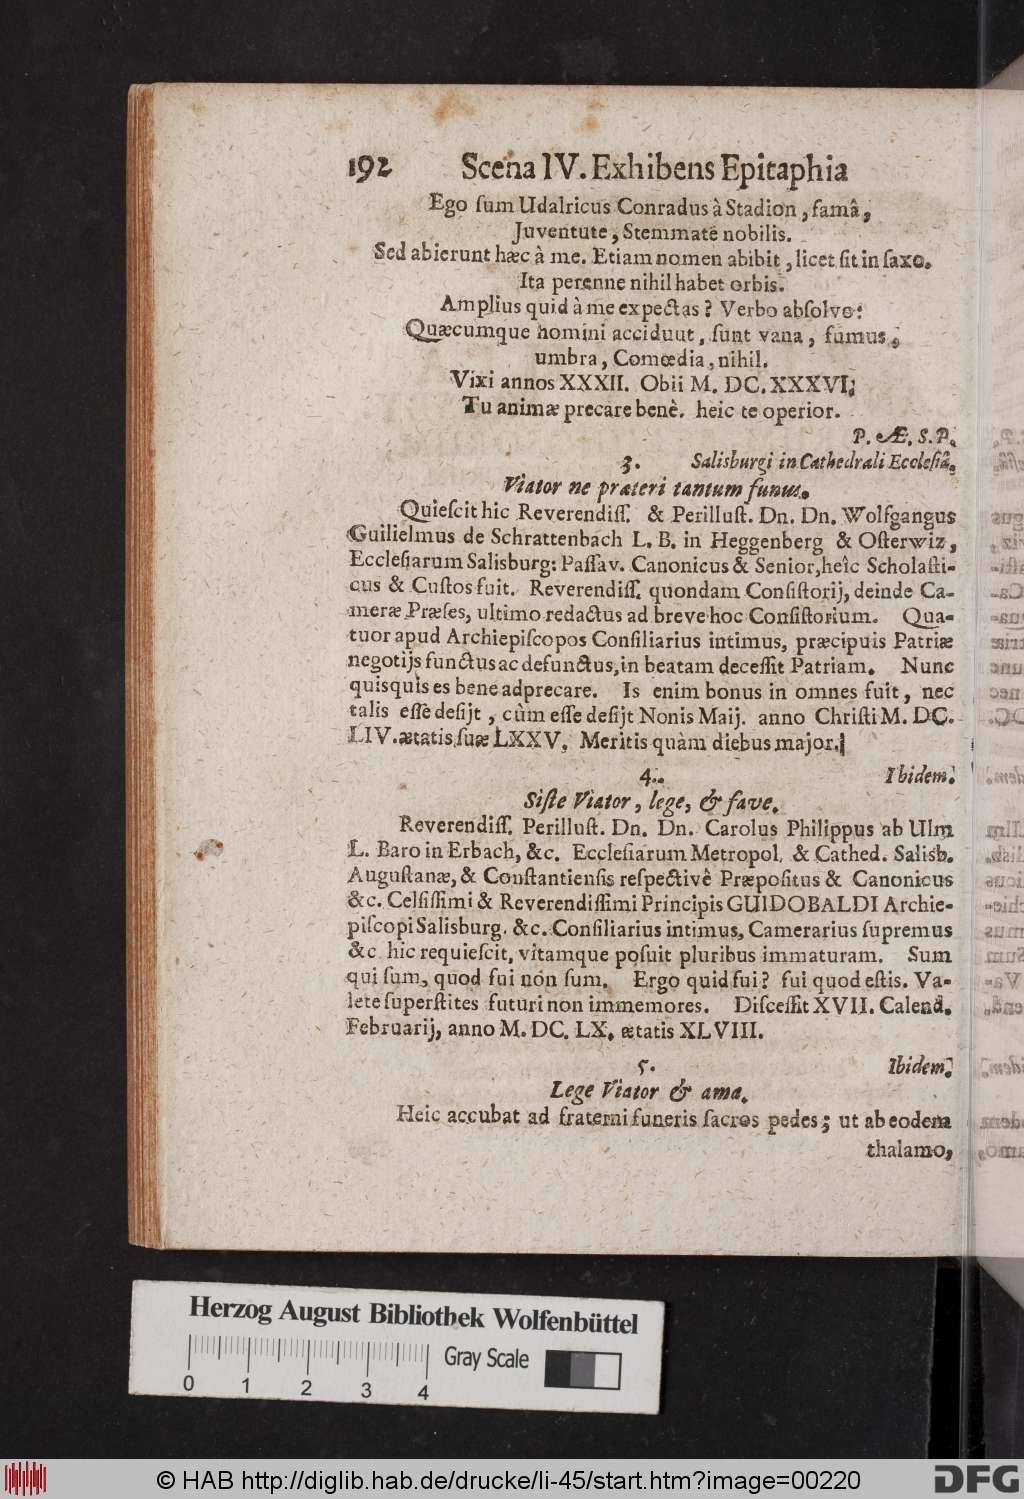 192 Scena IV. Exhibens Epitaphia
Ego ſum Udalricus Conradus à Stadion, famâ,
Juventute, Stemmate nobilis.
Sed abierunt hæc à me. Etiam nomen abibit, licet ſit in ſaxo.
Ita perenne nihil habet orbis.
Amplius quid à me expectas? Verbo abſolvo:
Quæcumque homini acciduut, ſunt vana, fumus,
umbra, Comœdia, nihil.
Vixi annos XXXII. Obii M. DC. XXXVI.
Tu animæ precare benè. heic te operior.
P. Æ. S. P.
3. Salisburgi in Cathedrali Eccleſiâ.
Viator ne præteri tantum funus.
Quieſcit hic Reverendiſſ. & Perilluſt. Dn. Dn. Wolfgangus
Guilielmus de Schrattenbach L. B. in Heggenberg & Oſterwiz,
Eccleſiarum Salisburg: Paſſav. Canonicus & Senior, heîc Scholaſti-
cus & Cuſtos fuit. Reverendiſſ. quondam Conſiſtorij, deinde Ca-
meræ Præſes, ultimo redactus ad breve hoc Conſiſtorium. Qua-
tuor apud Archiepiſcopos Conſiliarius intimus, præcipuis Patriæ
negotijs functus ac defunctus, in beatam deceſſit Patriam. Nunc
quisquis es bene adprecare. Is enim bonus in omnes fuit, nec
talis eſſe deſijt, cùm eſſe deſijt Nonis Maij. anno Chriſti M. DC.
LIV. ætatis ſuæ LXXV. Meritis quàm diebus major.
4. Ibidem.
Siſte Viator, lege, & fave.
Reverendiſſ. Perilluſt. Dn. Dn. Carolus Philippus ab Ulm
L. Baro in Erbach, &c. Eccleſiarum Metropol. & Cathed. Salisb.
Auguſtanæ, & Conſtantienſis reſpectivè Præpoſitus & Canonicus
&c. Celſiſſimi & Reverendiſſimi Principis GUIDOBALDI Archie-
piſcopi Salisburg. &c. Conſiliarius intimus, Camerarius ſupremus
&c. hic requieſcit, vitamque poſuit pluribus immaturam. Sum
qui ſum, quod fui non ſum. Ergo quid fui? fui quod eſtis. Va-
lete ſuperſtites futuri non immemores. Diſceſſit XVII. Calend.
Februarij, anno M. DC. LX. ætatis XLVIII.
5. Ibidem.
Lege Viator & ama.
Heic accubat ad fraterni funeris ſacros pedes; ut ab eodem
thalamo,
Herzog August Bibliothek Wolfenbüttel
Gray Scale
0 1 2 3 4
© HAB http://diglib.hab.de/drucke/li-45/start.htm?image=00220
DFG